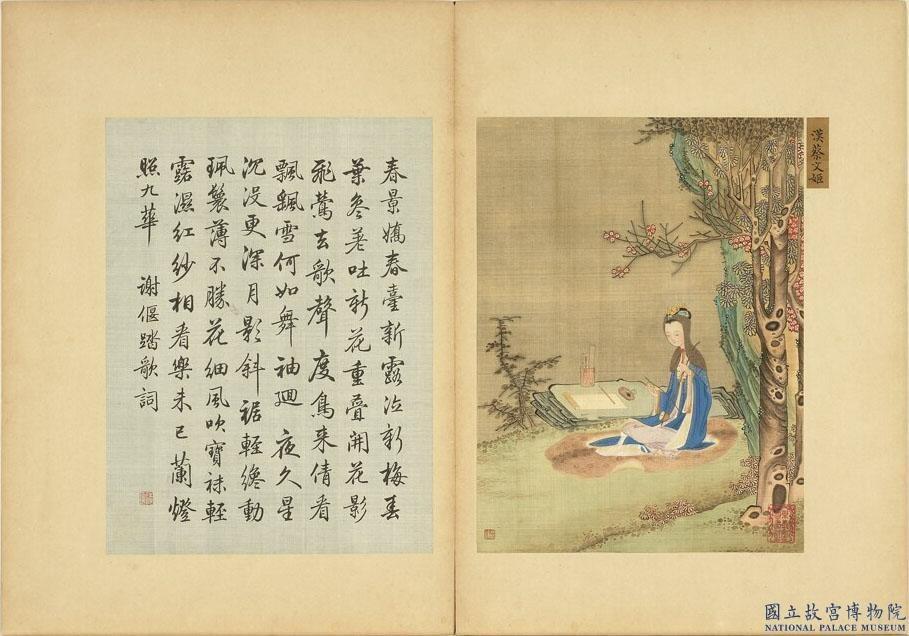 漢蔡文姬
春景嬌春臺新露泣新梅春
葉參差吐新花重疊開花影
飛鶯去歌聲度鳥來倩看
飄颻雪何如舞袖迴 夜久星
沉沒更深月影斜裾輕纔動
珮鬟薄不勝花細風吹寶袜輕
露濕紅紗相看樂未已蘭燈
照九華 謝偃踏歌詞
國立故宮博物院
NATIONAL PALACE MUSEUM